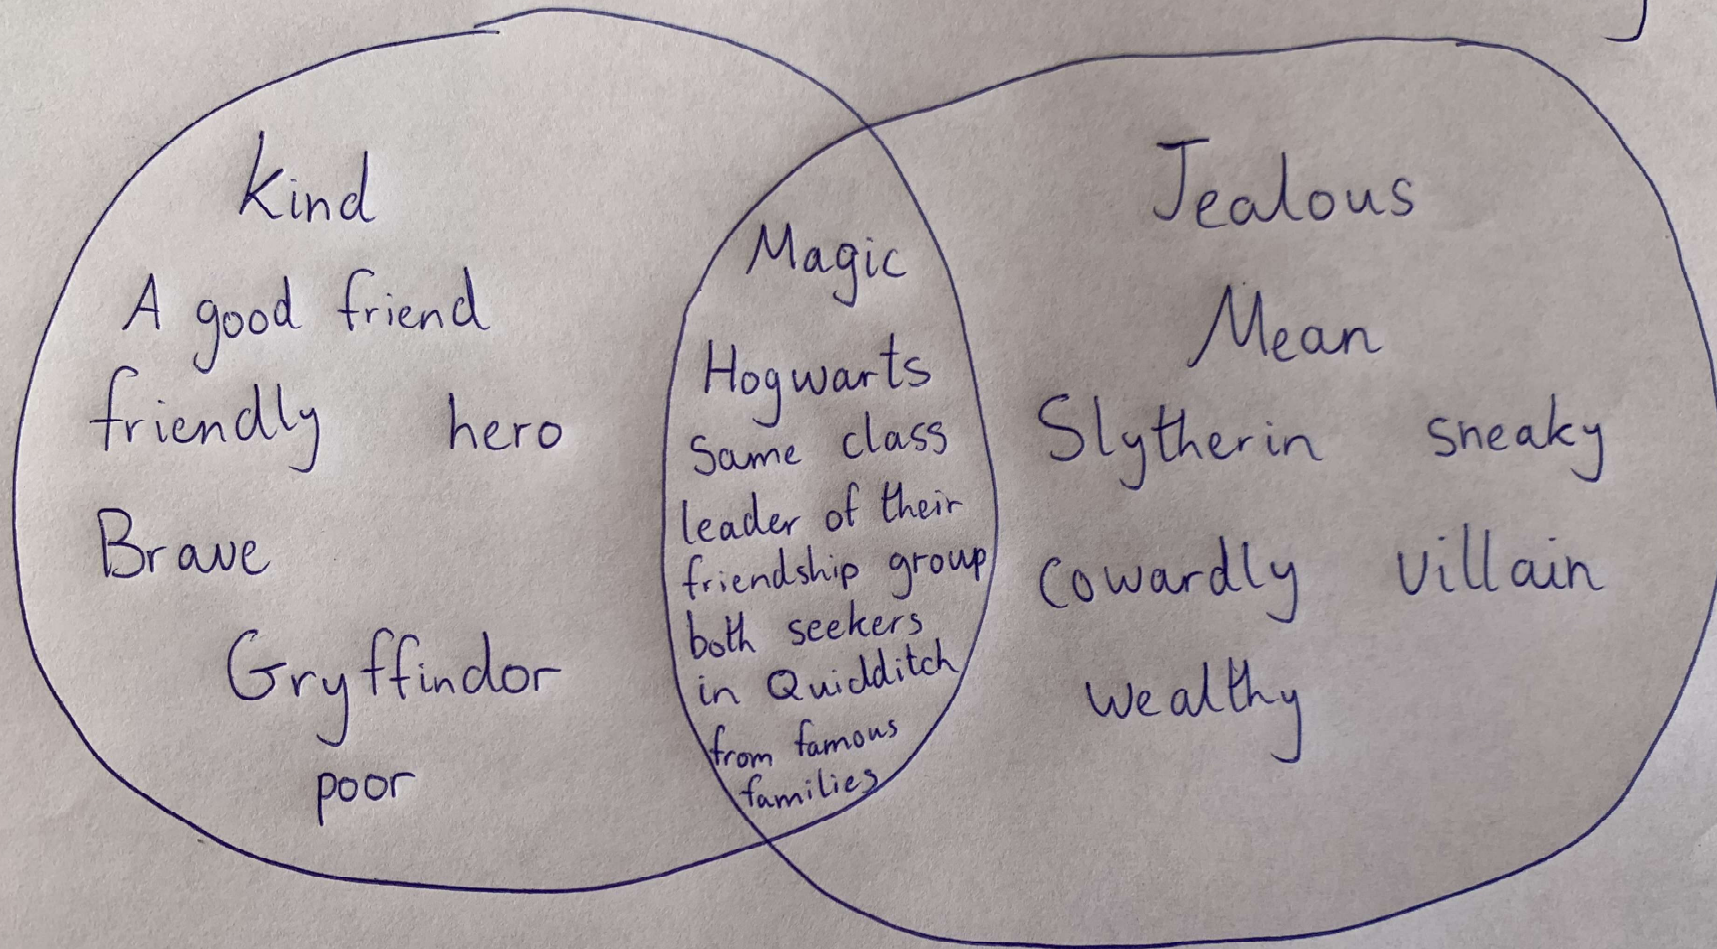 Kind
A good friend
friendly hero
Brave
Gryffindor
poor
Magic
Hogwarts
Same class
leader of their
friendship group
both seekers
in Quidditch
from famous
families
Jealous
Mean
Slytherin sneaky
cowardly villain
wealthy